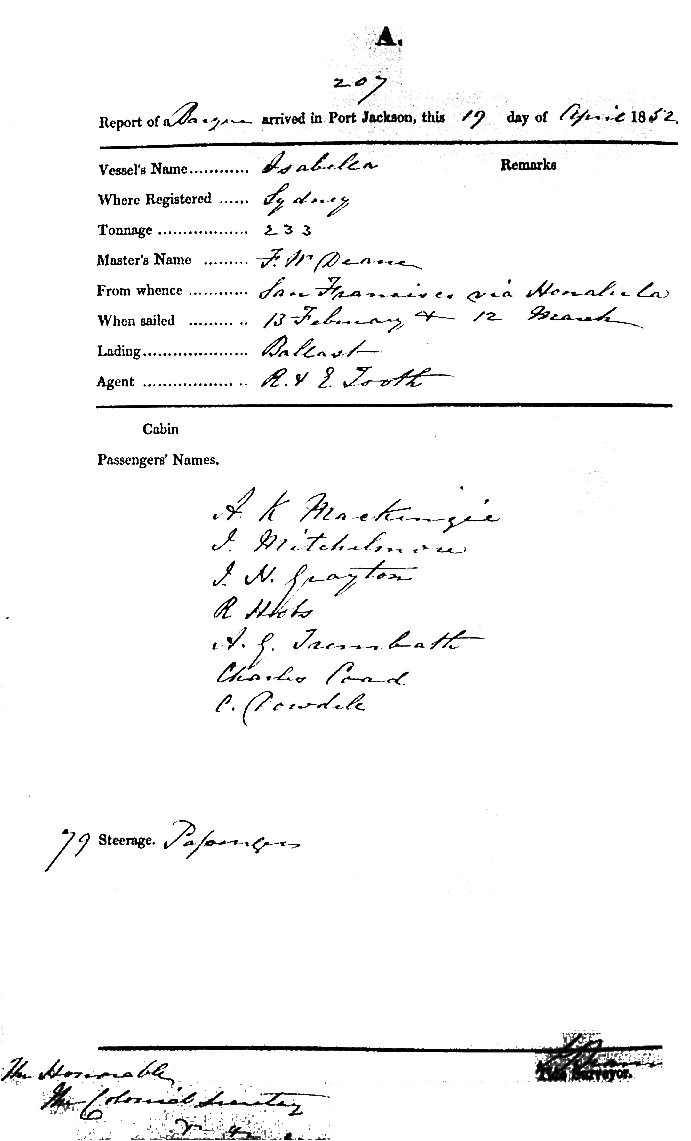 A.
207
Report of a Barque arrived in Port Jackson, this 19 day of April 1852.
Vessel's Name............ Isabella Remarks
Where Registered ...... Sydney
Tonnage .................. 233
Master's Name ......... F. W Deane
From whence ............ San Francisco via Honolulu
When sailed ......... .. 13 February & 12 March
Lading..................... Ballast
Agent .................. .. R. & E. Tooth
Cabin
Passengers' Names.
A K Mackenzie
J. Mitchelmore
J. N. Grayton
R Hobs
A. G. Trembath
Charles Coad
C. Dowdele
79 Steerage. Passengers
Tide Surveyor.
The Honorable
The Colonial Secretary